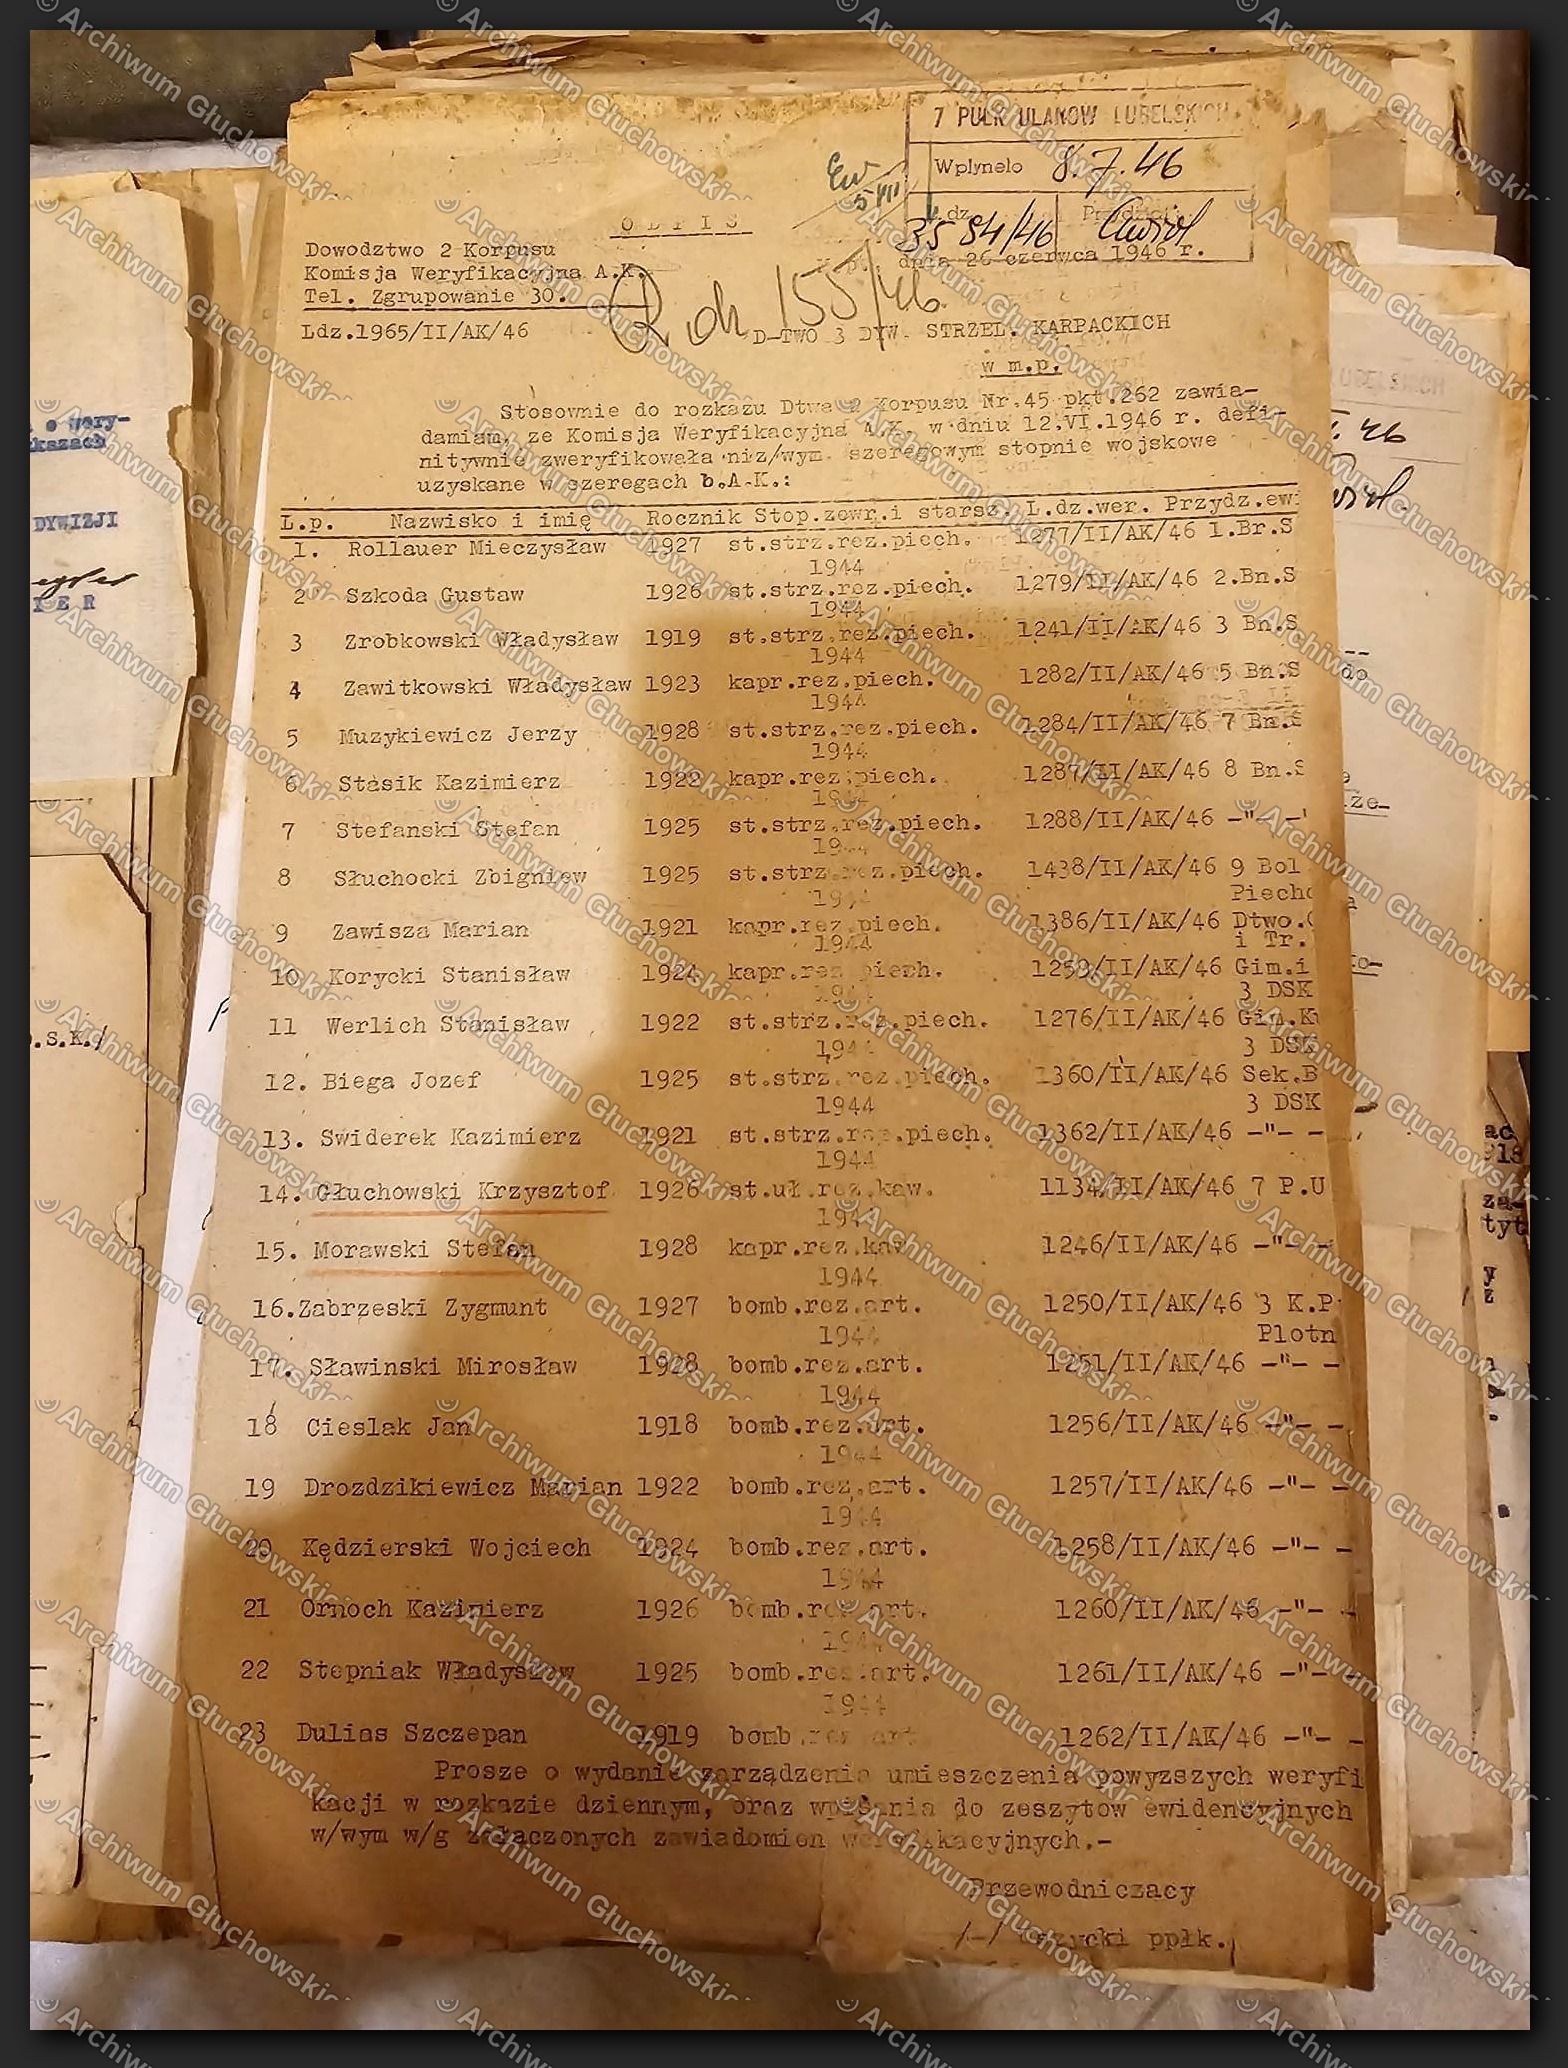 7 PUŁK UŁANÓW LUBELSKICH
Wpłynęło 8.7.46
5 VII
L.dz. 3584/46
O D P I S
dnia 26 czerwca 1946 r.
Dowodztwo 2 Korpusu
Komisja Weryfikacyjna A.K.
Tel. Zgrupowanie 30.
155/46
Ldz.1965/II/AK/46
D-TWO 3 DYW. STRZEL. KARPACKICH
w m.p.
Stosownie do rozkazu Dtwa 2 Korpusu Nr.45 pkt.262 zawia-
damiam, ze Komisja Weryfikacyjna A.K. w dniu 12.VI.1946 r. defi-
nitywnie zweryfikowała niz/wym. szeregowym stopnie wojskowe
uzyskane w szeregach b.A.K.:
L.p. Nazwisko i imię Rocznik Stop.zewr.i starsz. L.dz.wer. Przydz.ewi
1. Rollauer Mieczysław 1927 st.strz.rez.piech. 1277/II/AK/46 1.Br.S
1944
2 Szkoda Gustaw 1926 st.strz.rez.piech. 1279/II/AK/46 2.Bn.S
1944
3 Zrobkowski Władysław 1919 st.strz.rez.piech. 1241/II/AK/46 3 Bn.S
1944
4 Zawitkowski Władysław 1923 kapr.rez.piech. 1282/II/AK/46 5 Bn.S
1944
5 Muzykiewicz Jerzy 1928 st.strz.rez.piech. 1284/II/AK/46 7 Bn.S
1944
6 Stasik Kazimierz 1922 kapr.rez.piech. 1287/II/AK/46 8 Bn.S
1944
7 Stefanski Stefan 1925 st.strz.rez.piech. 1288/II/AK/46 -"- -"
1944
8 Słuchocki Zbigniew 1925 st.strz.rez.piech. 1438/II/AK/46 9 Bol
1944 Piecho
9 Zawisza Marian 1921 kapr.rez.piech. 1386/II/AK/46 Dtwo.
1944 i Tr.
10 Korycki Stanisław 1924 kapr.rez.piech. 1259/II/AK/46 Gim.i
1944 3 DSK
11 Werlich Stanisław 1922 st.strz.rez.piech. 1276/II/AK/46 Gim.
1944 3 DSK
12. Biega Jozef 1925 st.strz.rez.piech. 1360/II/AK/46 Sek.B
1944 3 DSK
13. Swiderek Kazimierz 1921 st.strz.rez.piech. 1362/II/AK/46 -"- -
1944
14. Głuchowski Krzysztof 1926 st.uł.rez.kaw. 1134/II/AK/46 7 P.U
1944
15. Morawski Stefan 1928 kapr.rez.kaw. 1246/II/AK/46 -"- -
1944
16.Zabrzeski Zygmunt 1927 bomb.rez.art. 1250/II/AK/46 3 K.P
1944 Plotn
17. Sławinski Mirosław 1928 bomb.rez.art. 1251/II/AK/46 -"- -
1944
18 Cieslak Jan 1918 bomb.rez.art. 1256/II/AK/46 -"- -
1944
19 Drozdzikiewicz Marian 1922 bomb.rez.art. 1257/II/AK/46 -"- -
1944
20 Kędzierski Wojciech 1924 bomb.rez.art. 1258/II/AK/46 -"- -
1944
21 Ornoch Kazimierz 1926 bomb.rez.art. 1260/II/AK/46 -"- -
1944
22 Stepniak Władysław 1925 bomb.rez.art. 1261/II/AK/46 -"- -
1944
23 Dulias Szczepan 1919 bomb.rez.art 1262/II/AK/46 -"- -
Prosze o wydanie zarządzenia umieszczenia powyzszych weryfi
kacji w rozkazie dziennym, oraz wpisania do zeszytow ewidencyjnych
w/wym w/g załączonych zawiadomien weryfikacyjnych.-
Przewodniczacy
/-/ ppłk.
o wery-
kazach
DYWIZJI
I E R
.S.K./
© Archiwum Głuchowskich